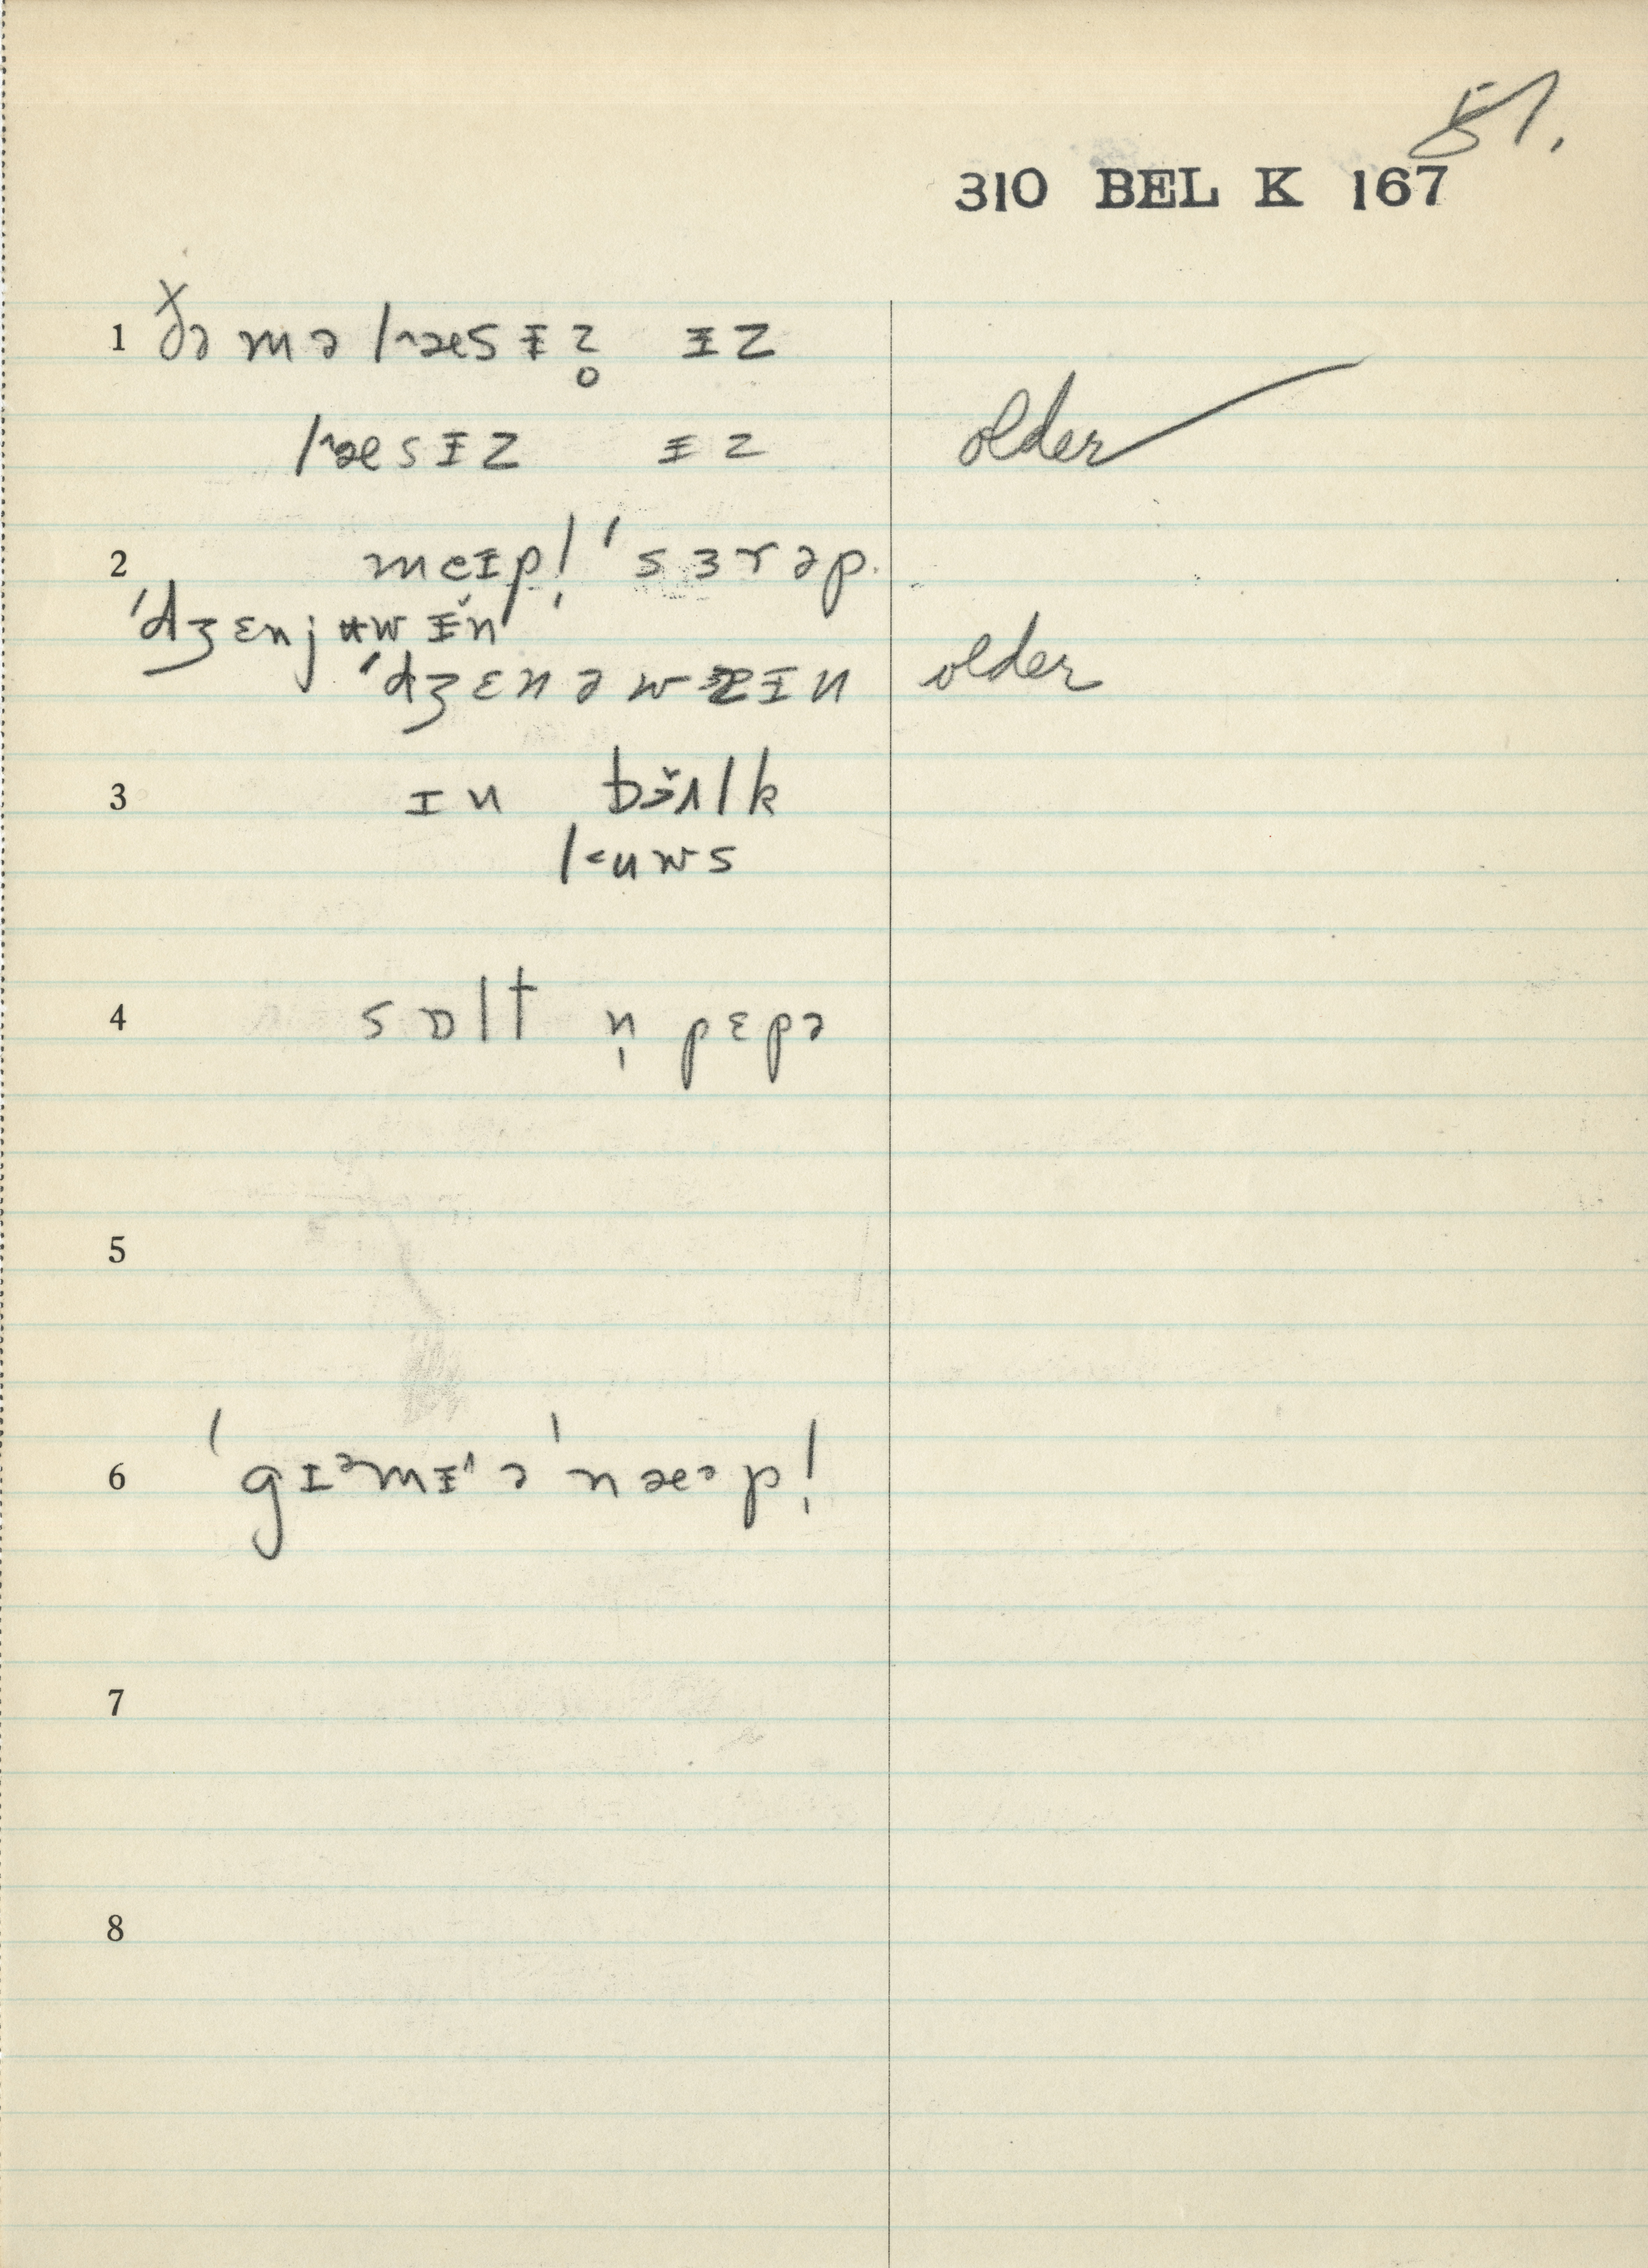 51.
310 BEL K 167
1 ðə mə lˆæsᵻz̥ ᵻz
lˆæsᵻz ᵻz older
2 meᵻpl̩ ˈsɜrəp.
ˈdʒɛnjʉwᵻ̌n
ˈdʒɛnəwɪn older
3 ɪn bɜ̌ʌlk
l˂uws
4 sɒlt n̩ pɛpə
5
6 ˈgɪᵊmᵻˈᶺə ˈnæᵊpl̩
7
8